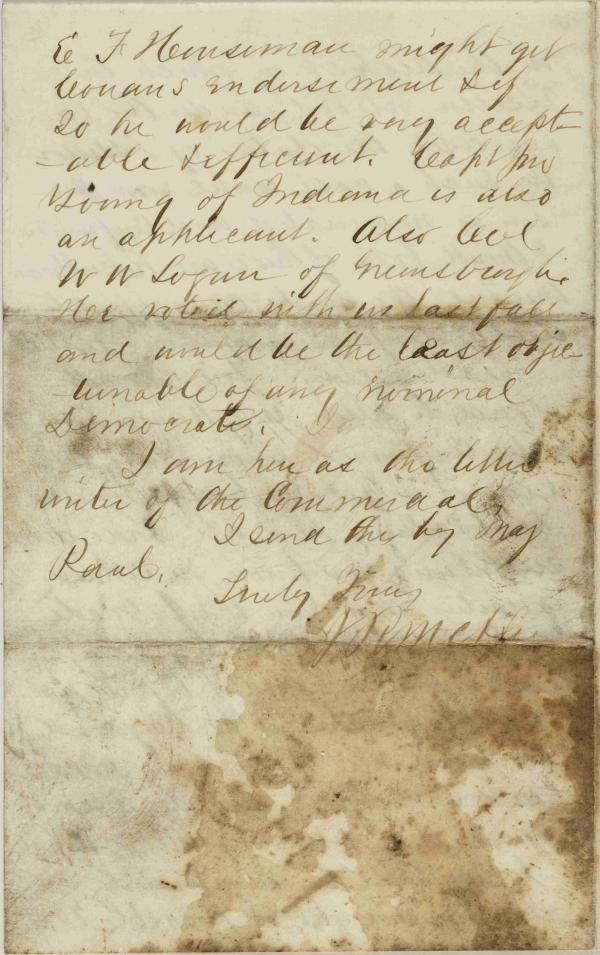 E F Houseman might get
Cowans endorsement & if
so he would be very accept-
-able & efficient. Capt Jno
Young of Indiana is also
an applicant. Also Col
W W Logan of Greensburgh.
Hee voted with us last fall
and would be the least objec-
-tionable of any nominal
Democrat.
I am here as the letter
writer of the Commercial,
I send the by Maj
Paul.
Truly Yours